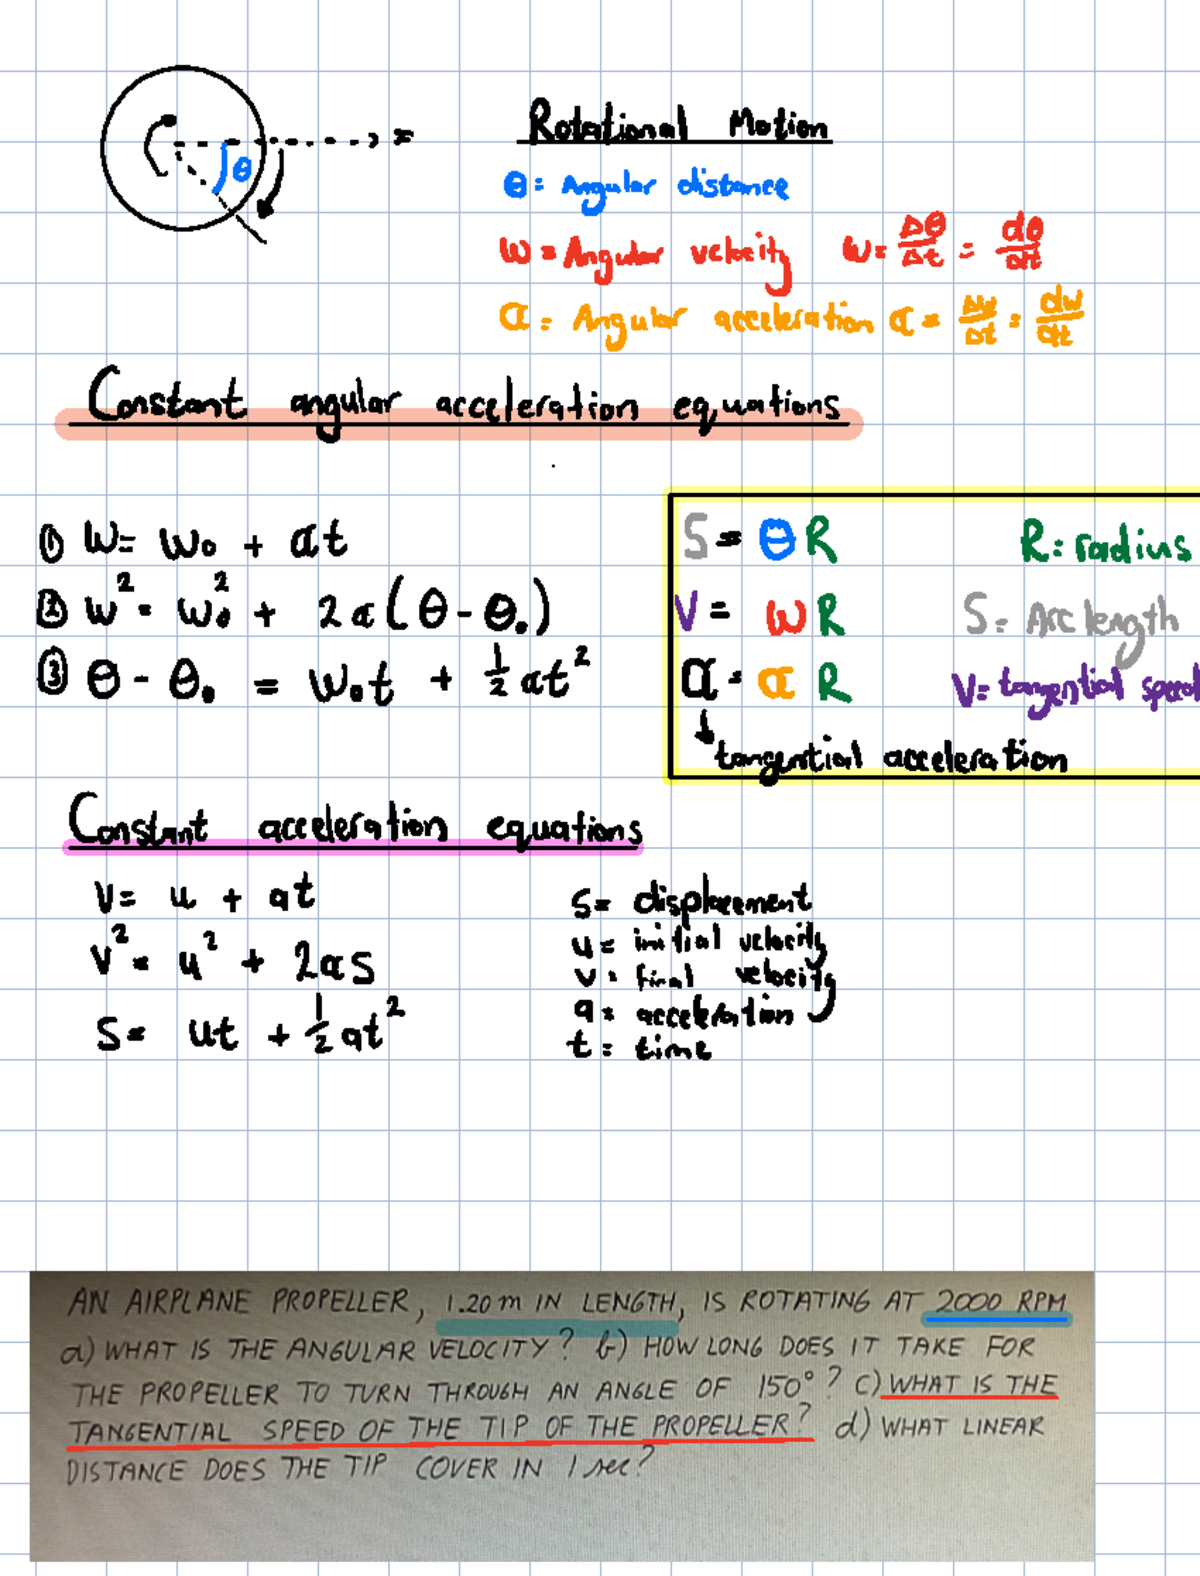 Rotational Motion
θ
x
θ = Angular distance
ω = Angular velocity ω = Δθ/Δt = dθ/dt
α = Angular acceleration α = Δω/Δt = dω/dt
Constant angular acceleration equations
① ω = ω₀ + αt
② ω² = ω₀² + 2α(θ - θ₀)
③ θ - θ₀ = ω₀t + ½αt²
S = θR R = radius
V = ωR S = Arc length
a = αR V = tangential speed
tangential acceleration
Constant acceleration equations
V = u + at
V² = u² + 2as
S = ut + ½at²
S = displacement
u = initial velocity
v = final velocity
a = acceleration
t = time
AN AIRPLANE PROPELLER, 1.20 m IN LENGTH, IS ROTATING AT 2000 RPM
a) WHAT IS THE ANGULAR VELOCITY? b) HOW LONG DOES IT TAKE FOR
THE PROPELLER TO TURN THROUGH AN ANGLE OF 150°? c) WHAT IS THE
TANGENTIAL SPEED OF THE TIP OF THE PROPELLER? d) WHAT LINEAR
DISTANCE DOES THE TIP COVER IN 1 sec?